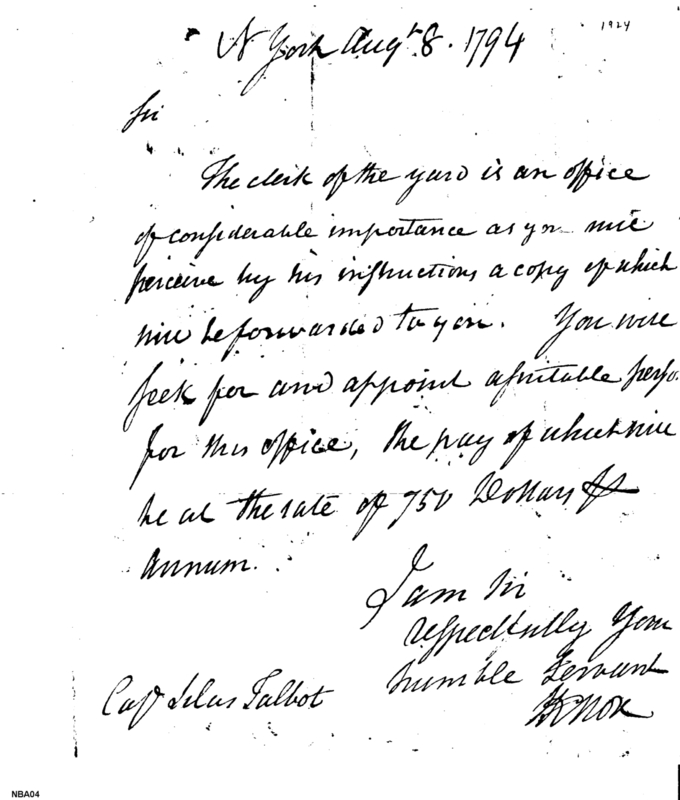 1924
N York Augt 8. 1794
Sir
The clerk of the yard is an office
of considerable importance as you will
perceive by his instructions a copy of which
will be forwarded to you. You will
seek for and appoint a suitable perso
for this office, the pay of which will
be at the rate of 750 Dollars
annum.
I am Sir
respectfully Your
humble Servant
HKnox
Cap Silas Talbot
NBA04